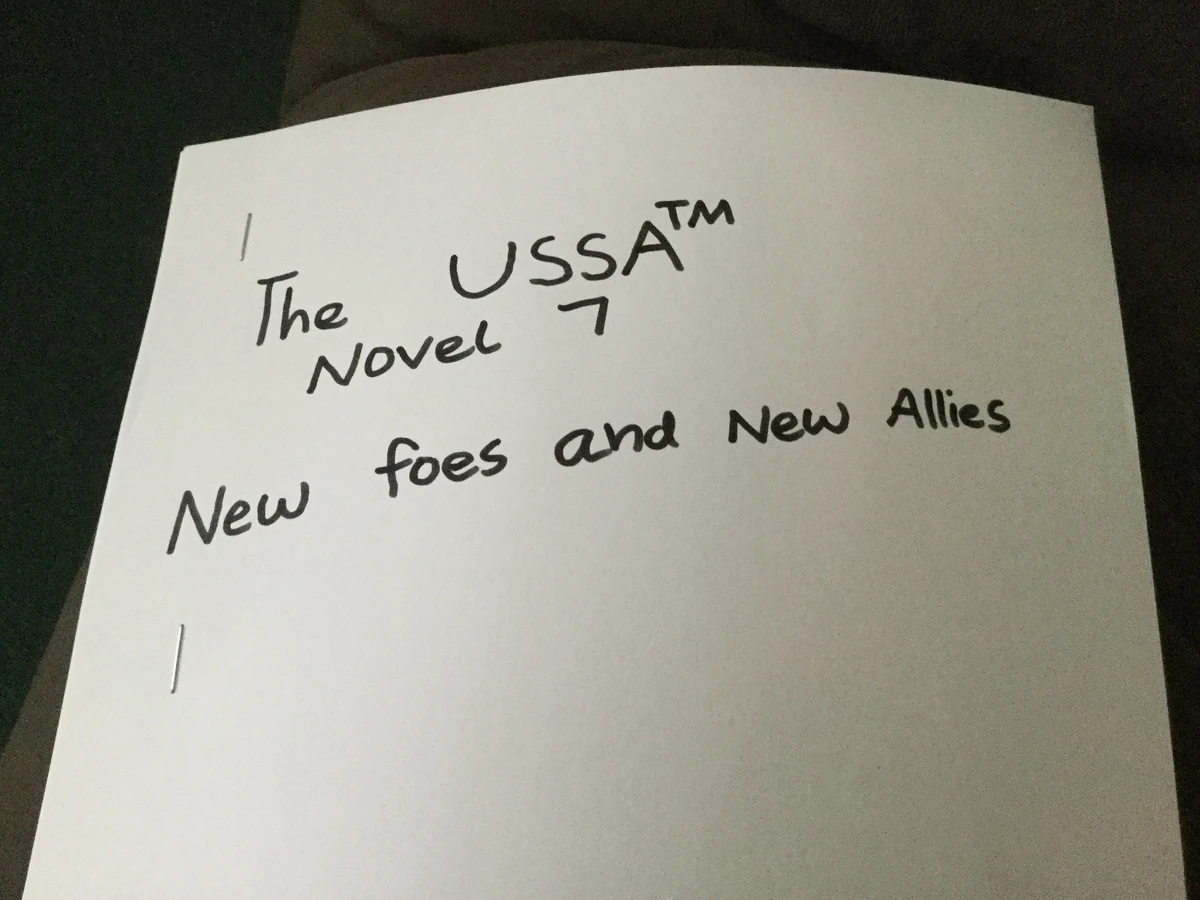 The USSA™
Novel 7
New foes and New Allies